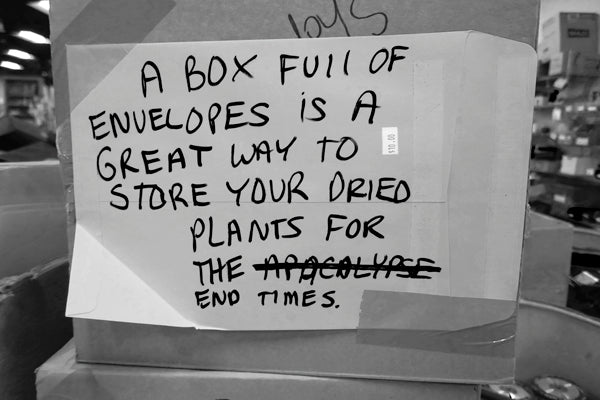 toys
A BOX FUll OF
ENVELOPES iS A
GREAT WAY TO
$10.00
STORE YOUR DRIED
PLANTS FOR
THE APACOLYPSE
END TIMES.